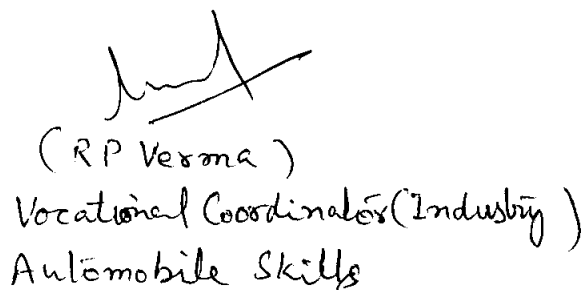 (RP Verma)
Vocational Coordinator (Industry)
Automobile Skills